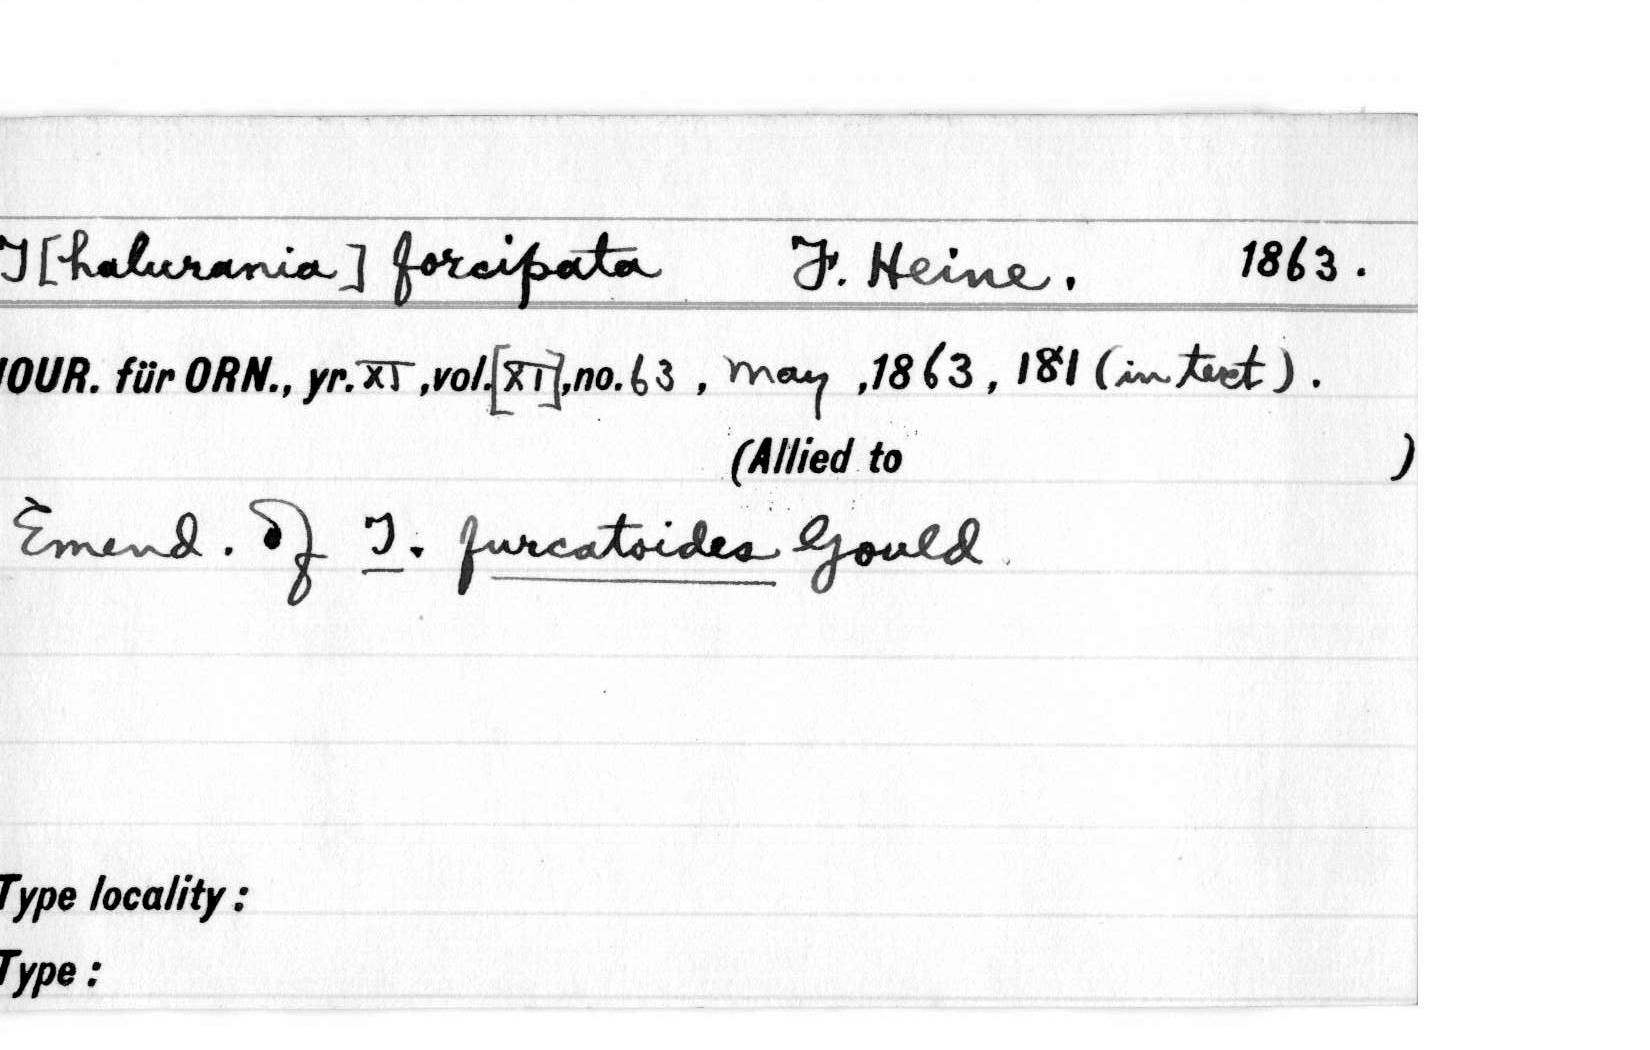 T[halurania] forcipata F. Heine. 1863.
JOUR. für ORN., yr. XI, vol. [XI], no. 63, May, 1863, 181 (in text).
(Allied to )
Emend. of T. furcatoides Gould
Type locality:
Type: